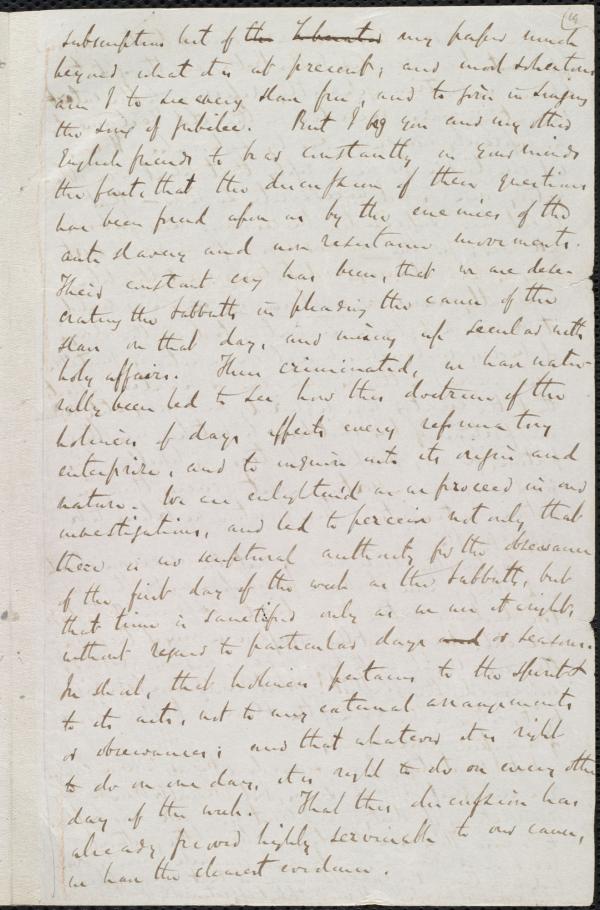 19
subscription list of the Liberator my paper much
beyond what it is at present; and most solicitous
am I to see every slave free, and to join in singing
the song of jubilee. But I beg you and my other
English friends to bear constantly in your minds
the fact, that the discussion of these questions
has been forced upon us by the enemies of the
anti-slavery and non-resistance movements.
Their constant cry has been, that we are dese-
crating the Sabbath in pleading the cause of the
slave on that day, and mixing up secular with
holy affairs. Thus criminated, we have natu-
rally been led to see how this doctrine of the
holiness of days affects every reformatory
enterprise, and to inquire into its origin and
nature. We are enlightened as we proceed in our
investigations, and led to perceive not only that
there is no scriptural authority for the observance
of the first day of the week as the Sabbath, but
that time is sanctified only as we use it aright,
without regard to particular days and or seasons.
In short, that holiness pertains to the spirit &
to its acts, not to any external arrangements
or observances; and that whatever it is right
to do on one day, it is right to do on every other
day of the week. That this discussion has
already proved highly serviceable to our cause,
we have the clearest evidence.